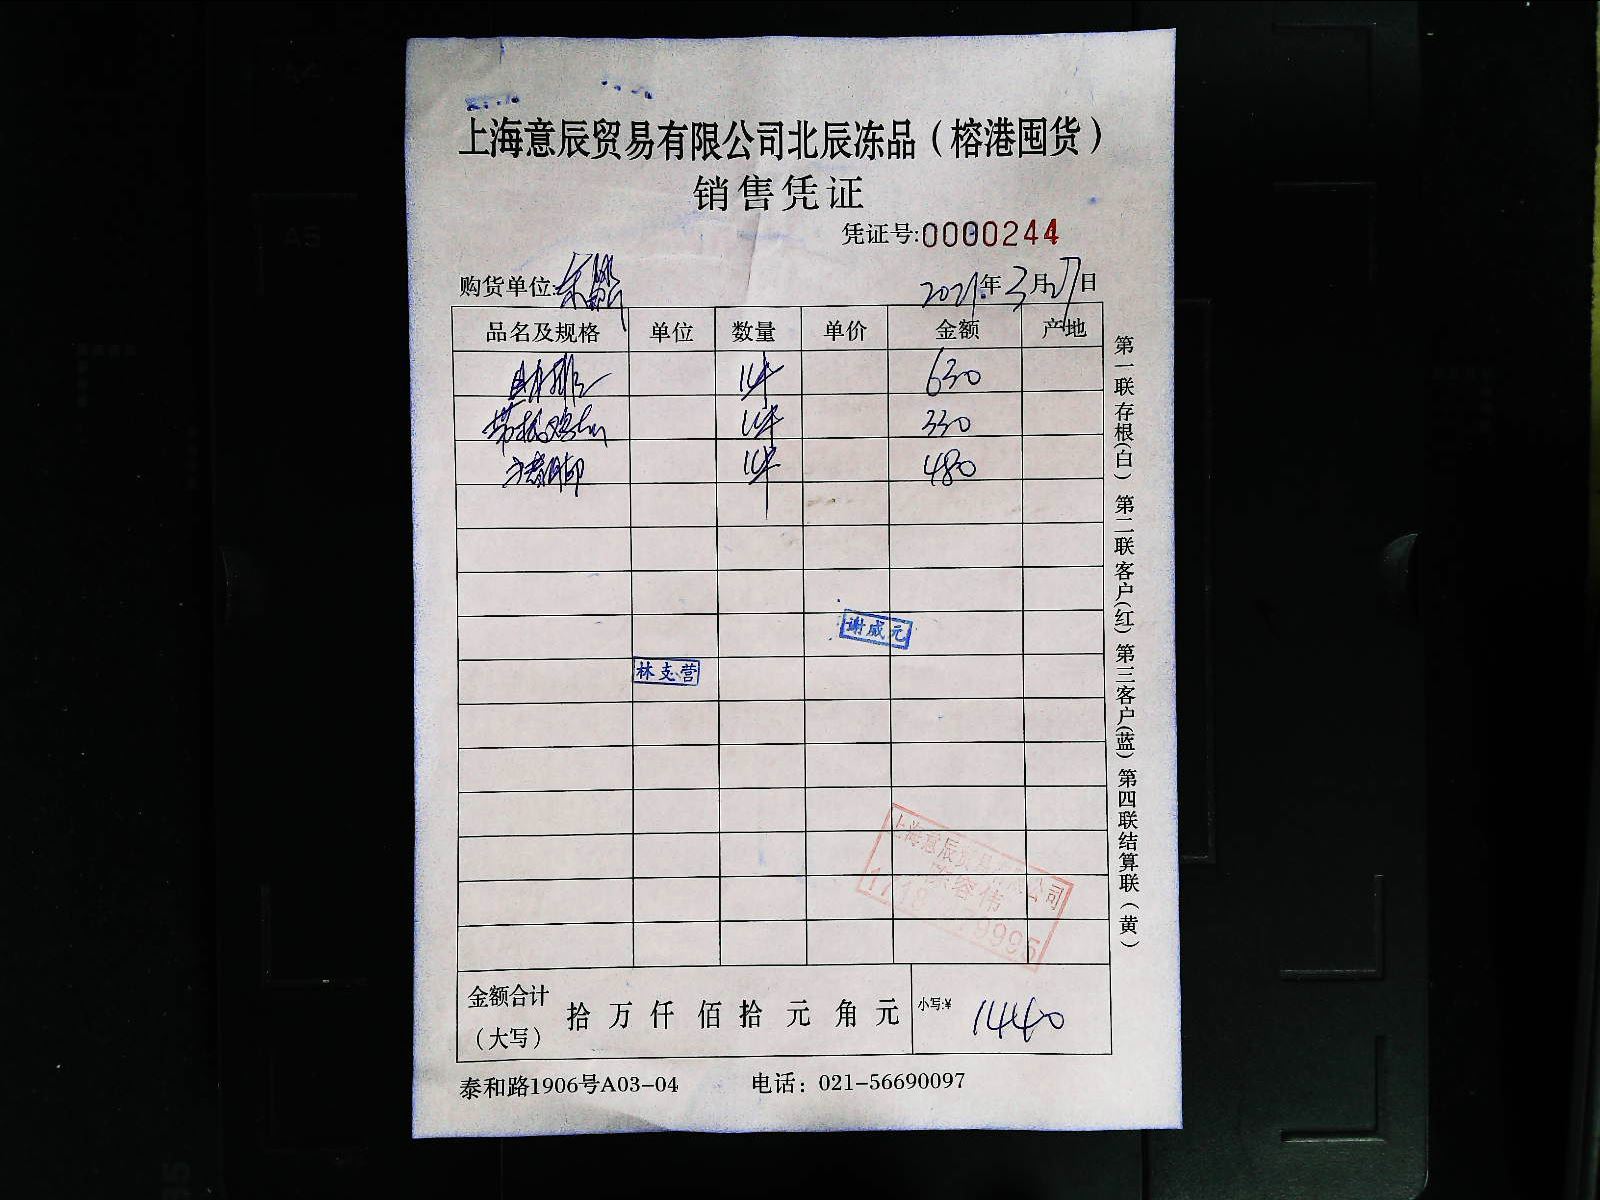 上海意辰贸易有限公司北辰冻品（榕港囤货）
销售凭证
凭证号:0000244
购货单位:
2021年3月27日
品名及规格 单位 数量 单价 金额 产地
1件 630
1件 330
猪脚 1件 480
谢威元
林支营
上海意辰贸易有限公司
容伟
金额合计（大写） 拾 万 仟 佰 拾 元 角 元 小写:¥ 1440
泰和路1906号A03-04 电话：021-56690097
第一联存根(白) 第二联客户(红) 第三客户(蓝) 第四联结算联（黄）